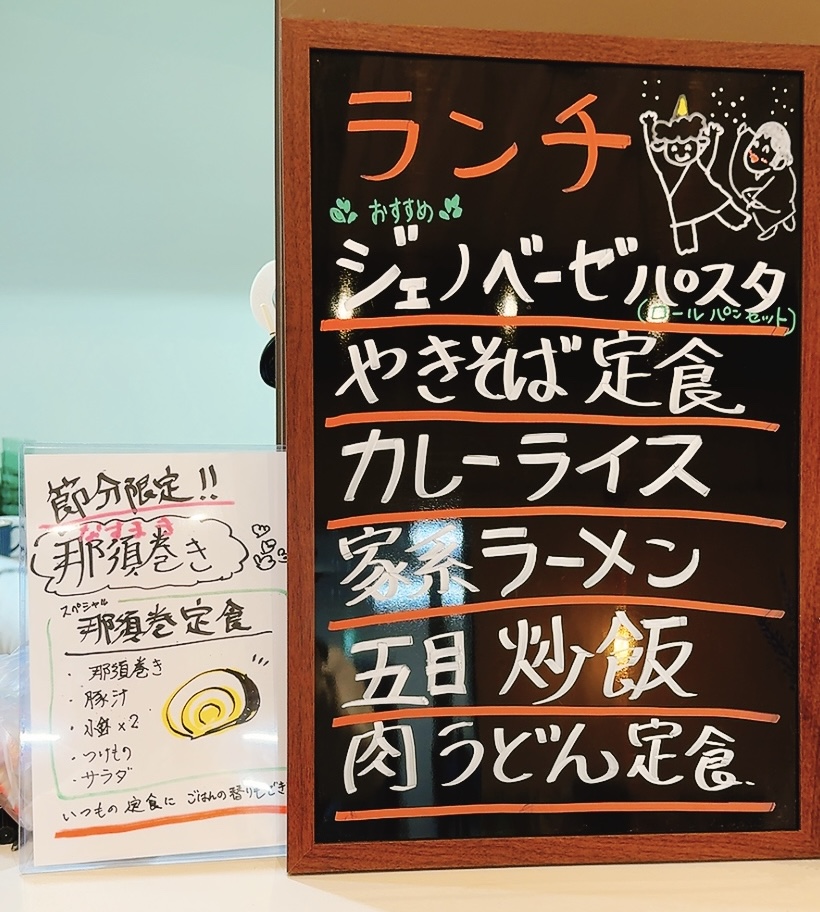 ランチ
おすすめ
ジェノベーゼパスタ
(ロールパンセット)
やきそば定食
カレーライス
家系ラーメン
五目炒飯
肉うどん定食
節分限定!!
なすまき
那須巻き
スペシャル
那須巻定食
・那須巻き
・豚汁
・小鉢×2
・つけもの
・サラダ
いつもの定食に ごはんの替りもでき